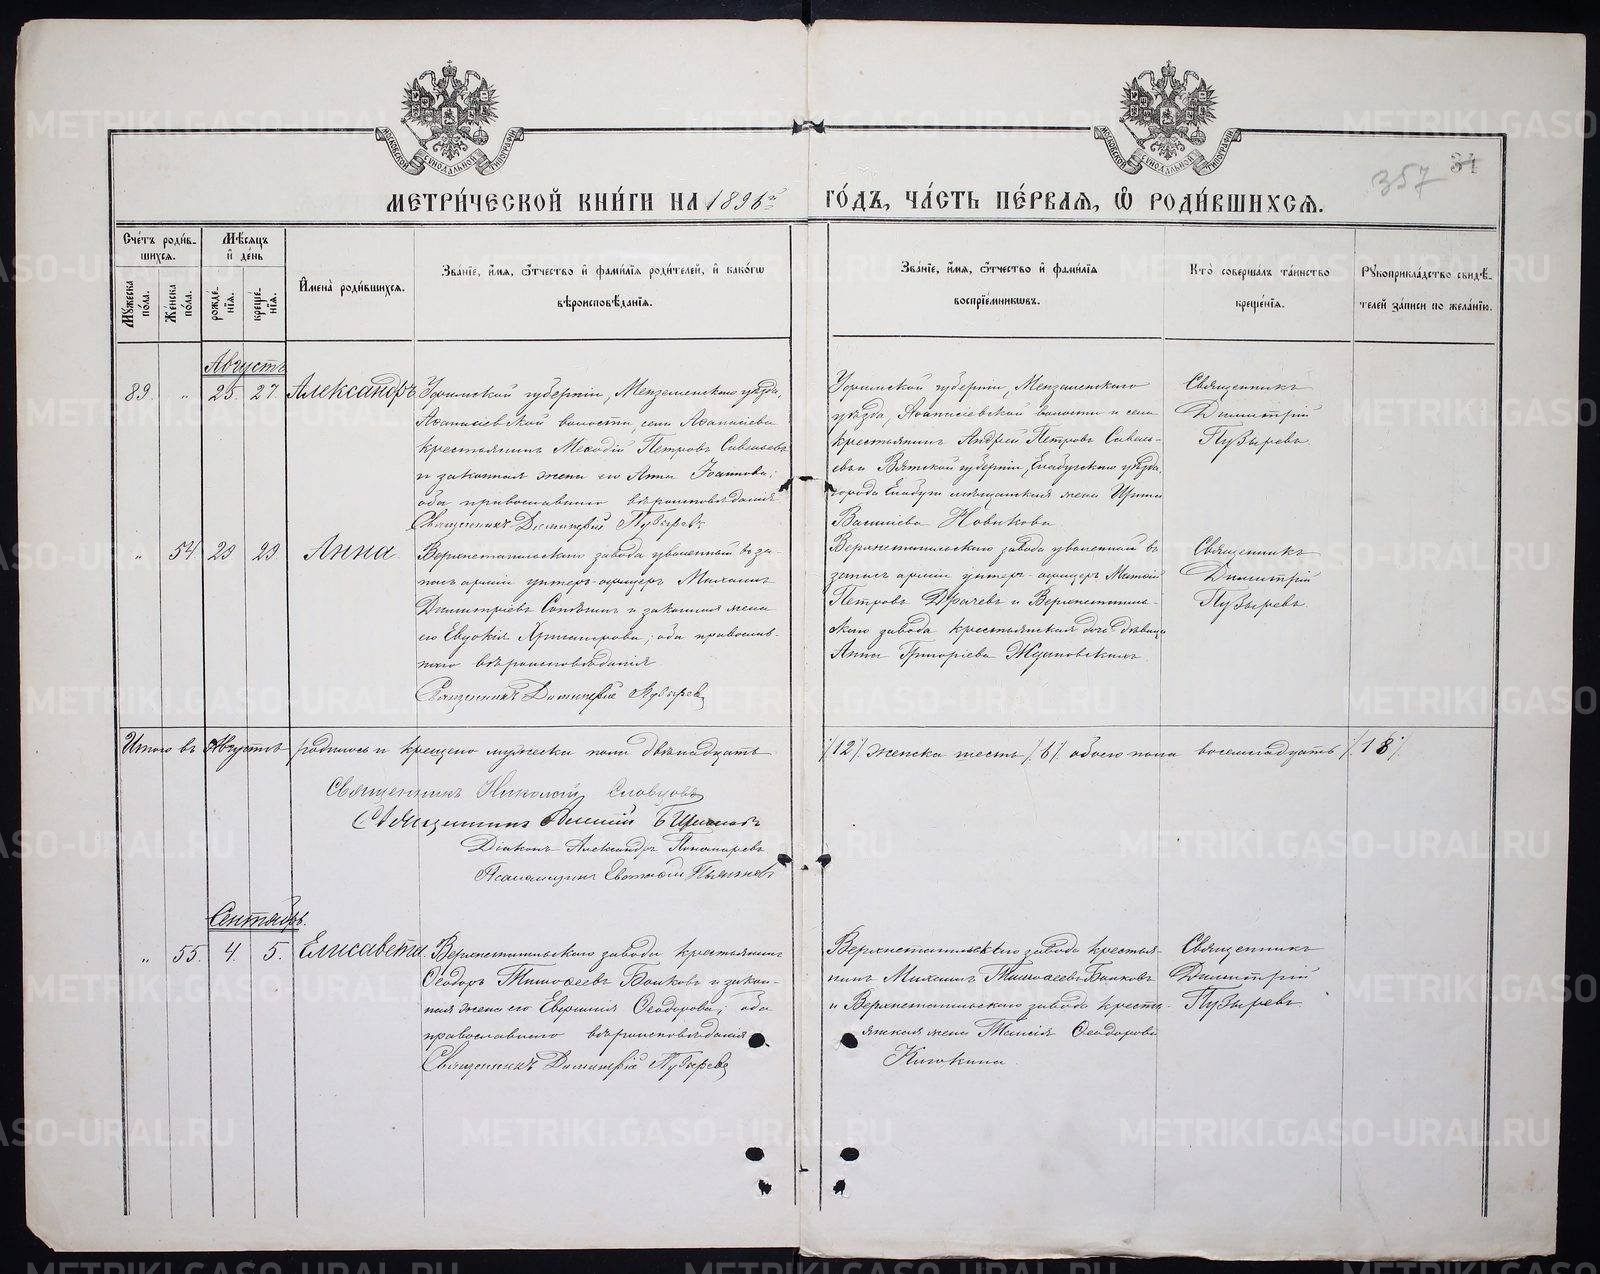 МОСКОВСКОЙ СУНОДАЛЬНОЙ ТИПОГРАФИИ
МОСКОВСКОЙ СУНОДАЛЬНОЙ ТИПОГРАФИИ
357 31
МЕТРИ́ЧЕСКОЙ КНИ́ГИ НА 1896й ГО́ДЪ, ЧА́СТЬ ПЕ́РВАѦ, Ѡ҆ РОДИ́ВШИХСѦ.
Сче́тъ роди́в-
шихсѧ.
Мꙋ́жеска
по́ла.
Же́нска
по́ла.
Мѣ́сѧцъ
и҆ де́нь
рожде́-
нїѧ.
креще́-
нїѧ.
И҆мена̀ роди́вшихсѧ.
Зва́нїе, и҆́мѧ, ѻ҆́тчество и҆ фамилїѧ роди́телей, и҆ како́гѡ
вѣроисповѣ́данїѧ.
Зва́нїе, и҆́мѧ, ѻ҆́тчество и҆ фамилїѧ
воспрїе́мникѡвъ.
Кто̀ соверша́лъ та́инство
креще́нїѧ.
Рꙋкоприкла́дство свидѣ́-
телей за́писи по жела́нїю.
Августъ
89. " 25. 27. Александръ.
Уфимской губерніи, Мензелинскаго уѣзда,
Аѳанасіевской волости, села Аѳанасіева
крестьянинъ Меѳодій Петровъ Савельевъ
и законная жена его Анна Іоаннова;
оба православнаго вѣроисповѣданія
Священникъ Димитрій Пузыревъ
Уфимской губерніи, Мензелинскаго
уѣзда, Аѳанасіевской волости и села
крестьянинъ Андрей Петровъ Савель-
евъ и Вятской губерніи, Елабужскаго уѣзда,
города Елабуги мѣщанская жена Ирина
Василіева Новикова
Священникъ
Димитрій
Пузыревъ.
" 54 23 23. Анна.
Верхнетагильскаго завода уволенный въ за-
пасъ арміи унтеръ-офицеръ Михаилъ
Димитріевъ и законная жена
его Евдокія; оба православ-
наго вѣроисповѣданія
Священникъ Димитрій Пузыревъ
Верхнетагильскаго завода уволенный въ
запасъ арміи унтеръ-офицеръ
Петровъ Драчевъ и Верхнетагиль-
скаго завода крестьянская дочь дѣвица
Анна Григоріева Ждановскихъ.
Священникъ
Димитрій
Пузыревъ.
Итого въ Августѣ родилось и крещено мужеска пола двѣнадцать /12/ женска шесть /6/ обоего пола восемнадцать /18/.
Священникъ Николай Словцовъ
Священникъ
Діаконъ Александръ Пономаревъ
Псаломщикъ
Сентябрь.
" 55. 4. 5. Елисавета
Верхнетагильскаго завода крестьянинъ
Ѳеодоръ Тимоѳеевъ Балковъ и закон-
ная жена его Ѳеодорова; оба
православнаго вѣроисповѣданія
Священникъ Димитрій Пузыревъ
Верхнетагильскаго завода крестья-
нинъ Михаилъ Тимоѳеевъ Балковъ
и Верхнетагильскаго завода кресть-
янская жена Таисія Ѳеодорова
Кичкина.
Священникъ
Димитрій
Пузыревъ
METRIKI.GASO-URAL.RU